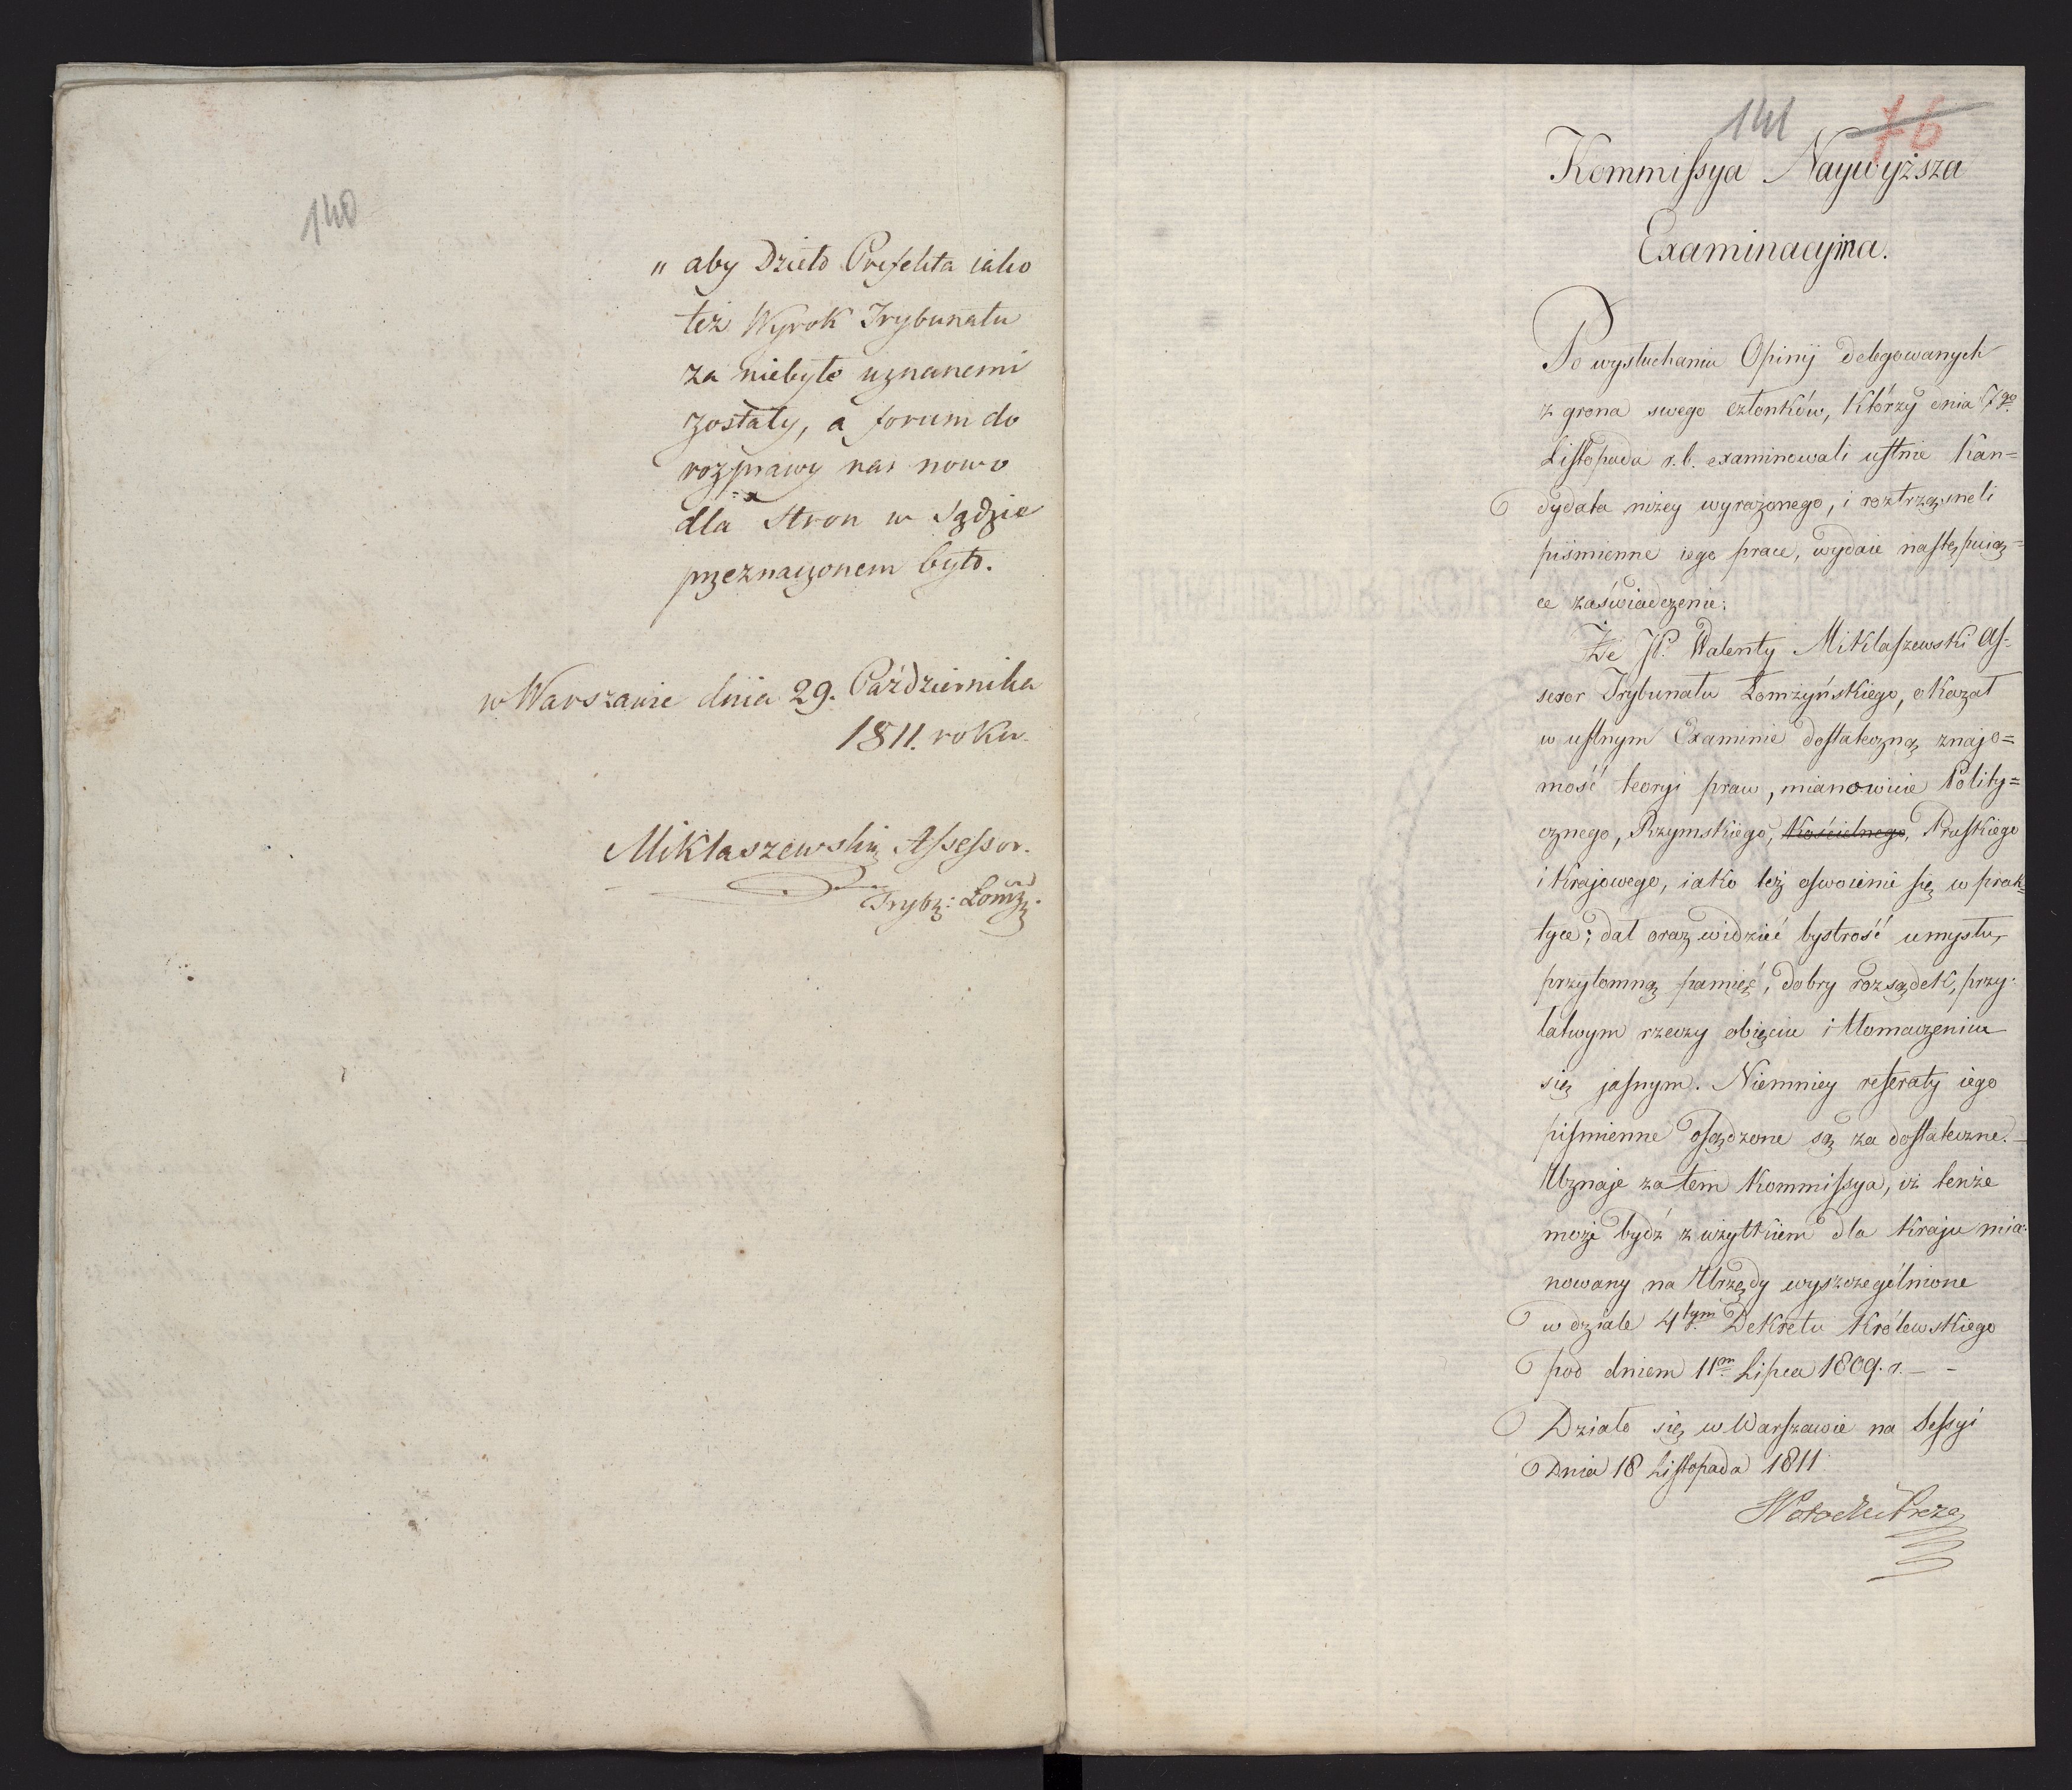 140
" aby Dzieło Prefekta iako
też Wyrok Trybunału
za niebyłe uznanemi
zostały, a forum do
rozprawy na nowo
dla Stron w Sądzie
przeznaczonem było.
w Warszawie dnia 29. Października
1811. roku.
Miklaszewski Assessor.
Tryb: Łomż:
141 76
Kommissya Naywyższa
Examinacyjna.
Po wysłuchaniu Opinij delegowanych
z grona swego członków, którzy dnia 7go
Listopada r. b. examinowali ustnie Kan=
dydata niżey wyrażonego, i roztrząsneli
piśmienne iego prace, wydaie następuią=
ce zaświadczenie:
Że JP. Walenty Miklaszewski As=
sesor Trybunału Łomżyńskiego, okazał
w ustnym Examinie dostateczną znajo=
mość teoryi praw, mianowicie Polity=
cznego, Rzymskiego, Kościelnego, Pruskiego
i Krajowego, iako też oswoienie się w prak=
tyce; dał oraz widzieć bystrość umysłu,
przytomną pamięć, dobry rozsądek, przy
łatwym rzeczy obięciu i tłomaczeniu
się jasnym. Niemniey referaty iego
piśmienne osądzone są za dostateczne. _
Uznaje zatem Kommissya, iż tenże
może bydź z użytkiem dla Kraju mia=
nowany na Urzędy wyszczególnione
w dziale 4tym Dekretu Królewskiego
pod dniem 11m Lipca 1809. r. _ _
Działo się w Warszawie na Sessyi
Dnia 18 Listopada 1811